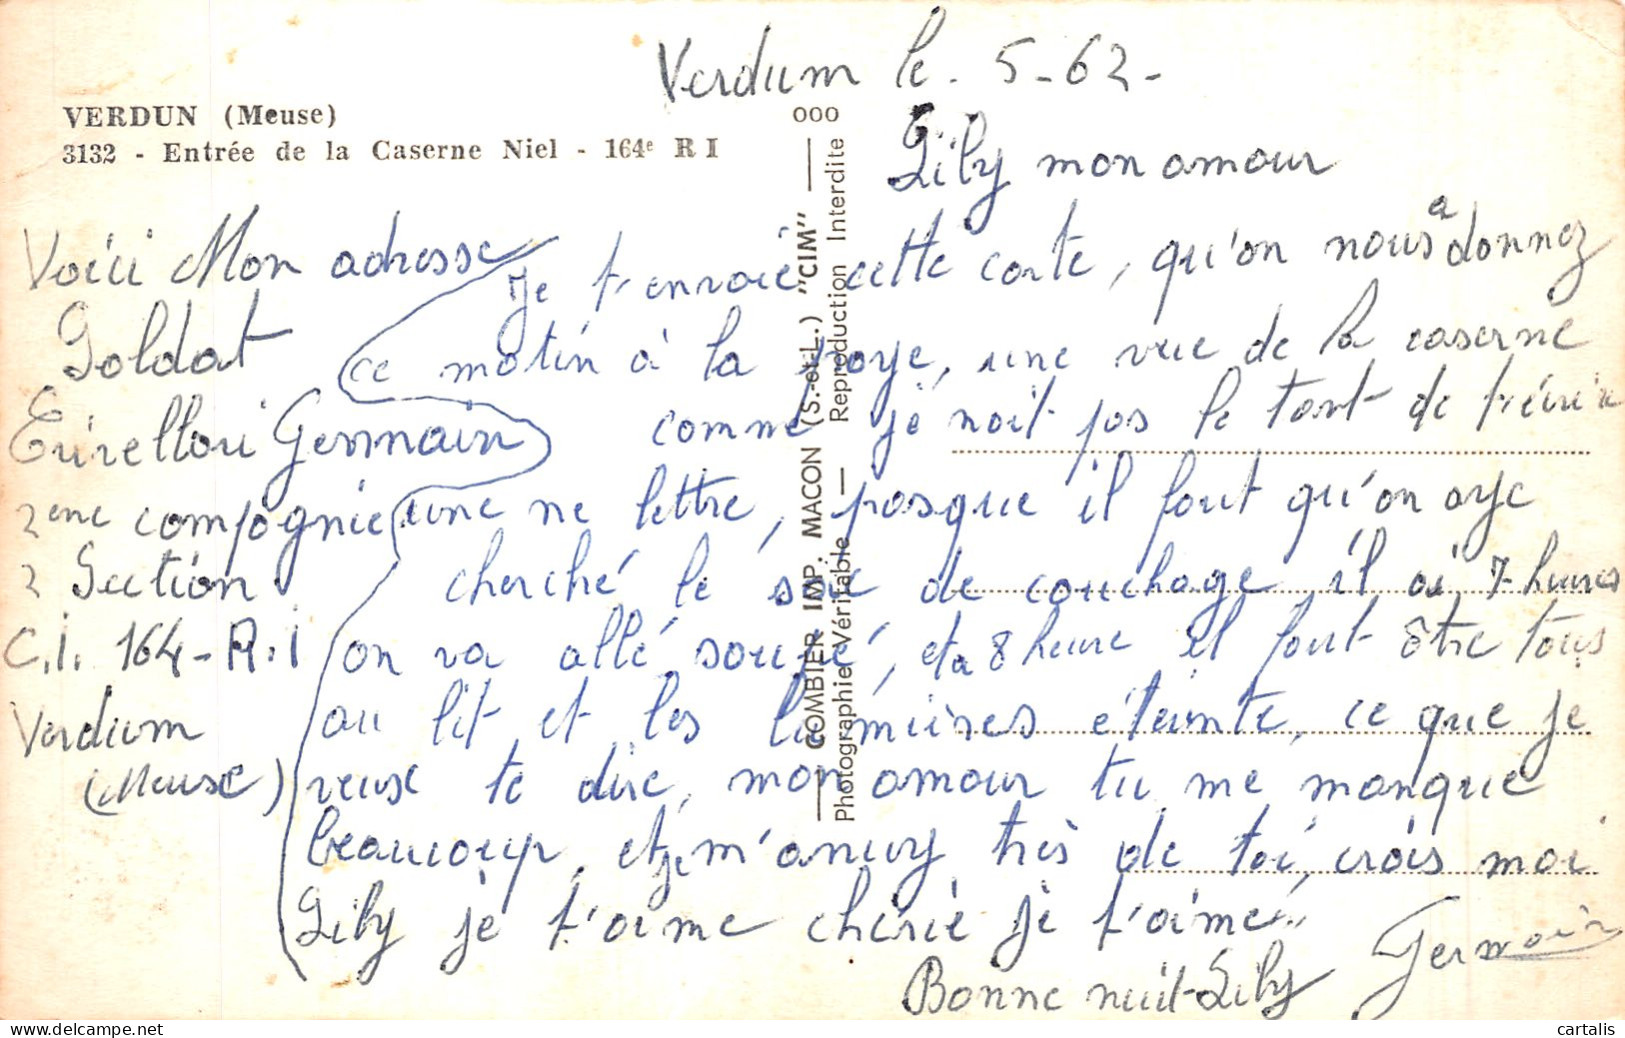 Verdum le. 5-62-
VERDUN (Meuse)
3132 - Entrée de la Caserne Niel - 164e R I
000
COMBIER IMP. MACON (S.-et-L.) "CIM"
Photographie Véritable — Reproduction Interdite
Lily mon amour
Je t'envoie cette carte, qu'on nous a donnez
ce matin à la paye, une vue de la caserne
comme je noit pas le tant de t'écrire
une lettre, pasque il fout qu'on aye
cherché le sac de couchage il 7 heures
on va allé soupé, et a 8 heure il fout être tous
au lit et les lumières éteinte, ce que je
veux te dire, mon amour tu me manque
beaucoup, et je m'anuy très de toi, crois moi
Lily je t'aime chérie je t'aime
Germain
Bonne nuit Lily
Voici Mon adresse
Soldat
Germain
2ene compagnie
2 Section
C.i. 164-R.i
Verdum
(Meuse)
cartalis